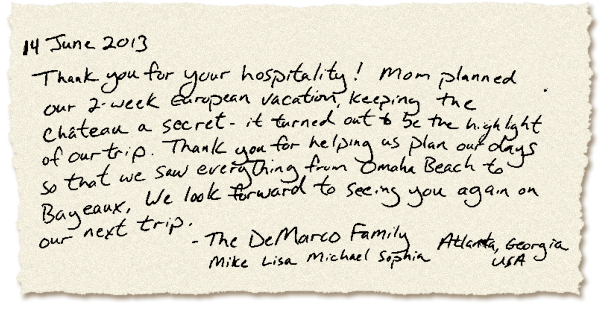 14 June 2013
Thank you for your hospitality! Mom planned
our 2-week European vacation, keeping the
Château a secret - it turned out to be the highlight
of our trip. Thank you for helping us plan our days
so that we saw everything from Omaha Beach to
Bayeaux. We look forward to seeing you again on
our next trip.
- The DeMarco Family
Mike Lisa Michael Sophia
Atlanta, Georgia
USA